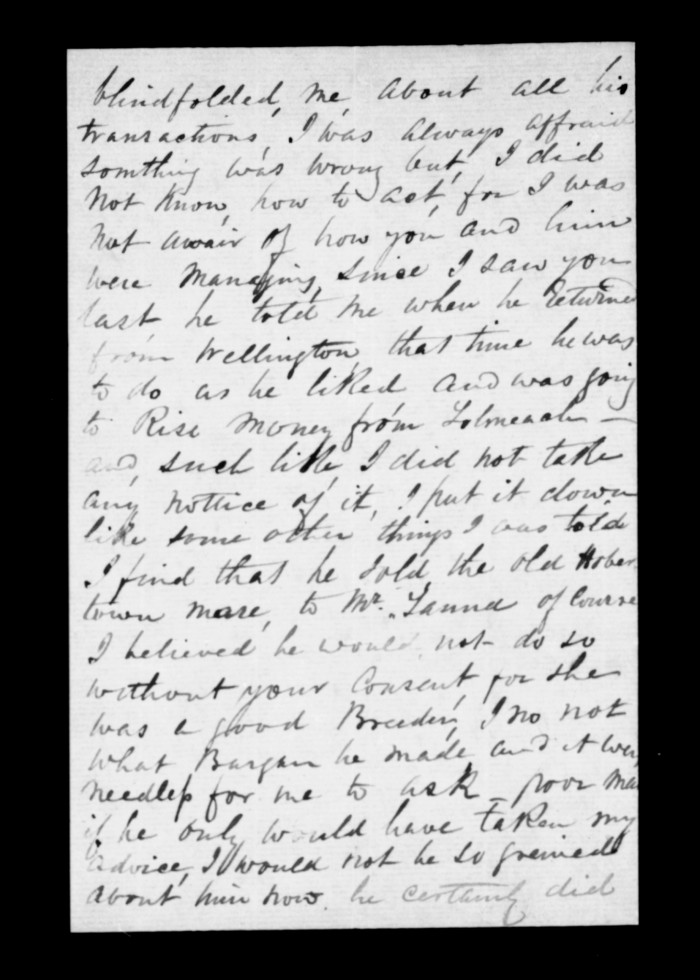 blindfolded, me, about all his
transactions, I was always affraid
somthing was wrong but, I did
Not Know, how to act, for I was
Not awair of how you and him
were Managing, since I saw you
last he told me when he Returned
from Wellington, that time he was
to do as he liked and was going
to Rise Money from
and, such like, I did not take
any nottice of it, I put it down
like some other things I was told
I find that he sold the old Hobar
town mare, to Mr. of Course
I believed he would not do so
without your Consent, for she
was a good Breeder, I no not
what Bargan he made, and it was
needless for me to ask - poor man
if he only would have taken my
advice, I would not be so greived
about him now. he certainly did